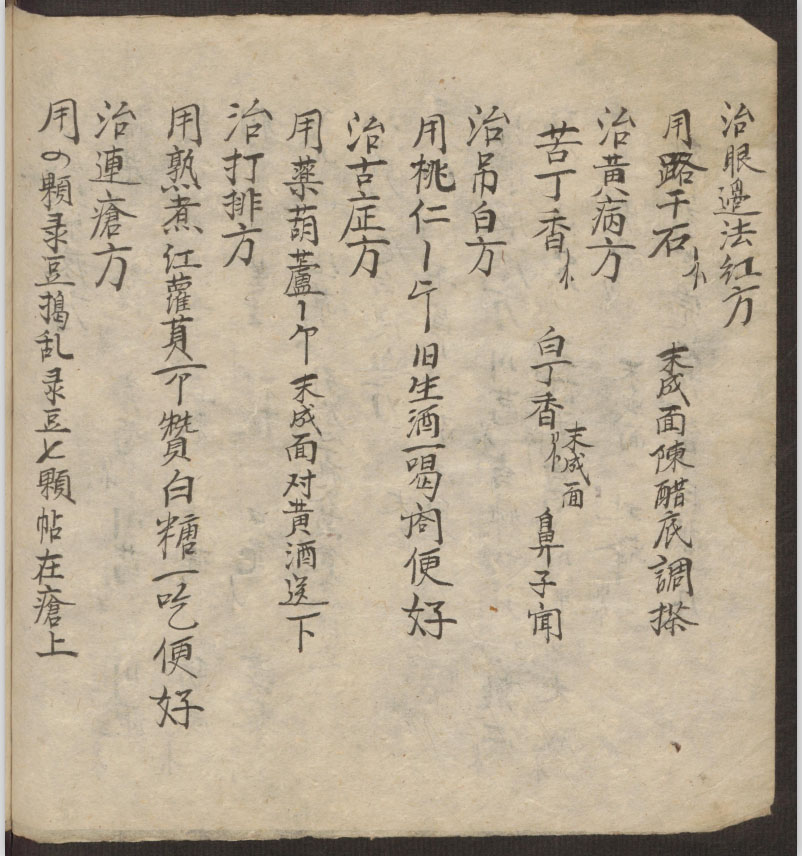 治眼邊法紅方
用路干石 末成面陳醋底調搽
治黄病方
苦丁香 白丁香 末成面 鼻子闻
治吊白方
用桃仁 旧生酒一喝 便好
治古症方
用藥葫蘆 末成面对黄酒送下
治打排方
用熟煮红蘿蔔一 白糖一吃便好
治連瘡方
用 顆录豆搗乱录豆七顆帖在瘡上